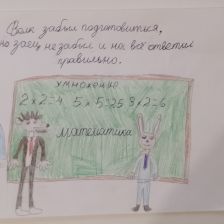 Волк забыл подготовиться,
но заец незабыл и на всё ответил
правильно.
умножение
2x2=4 5x5=25 3x2=6
математика